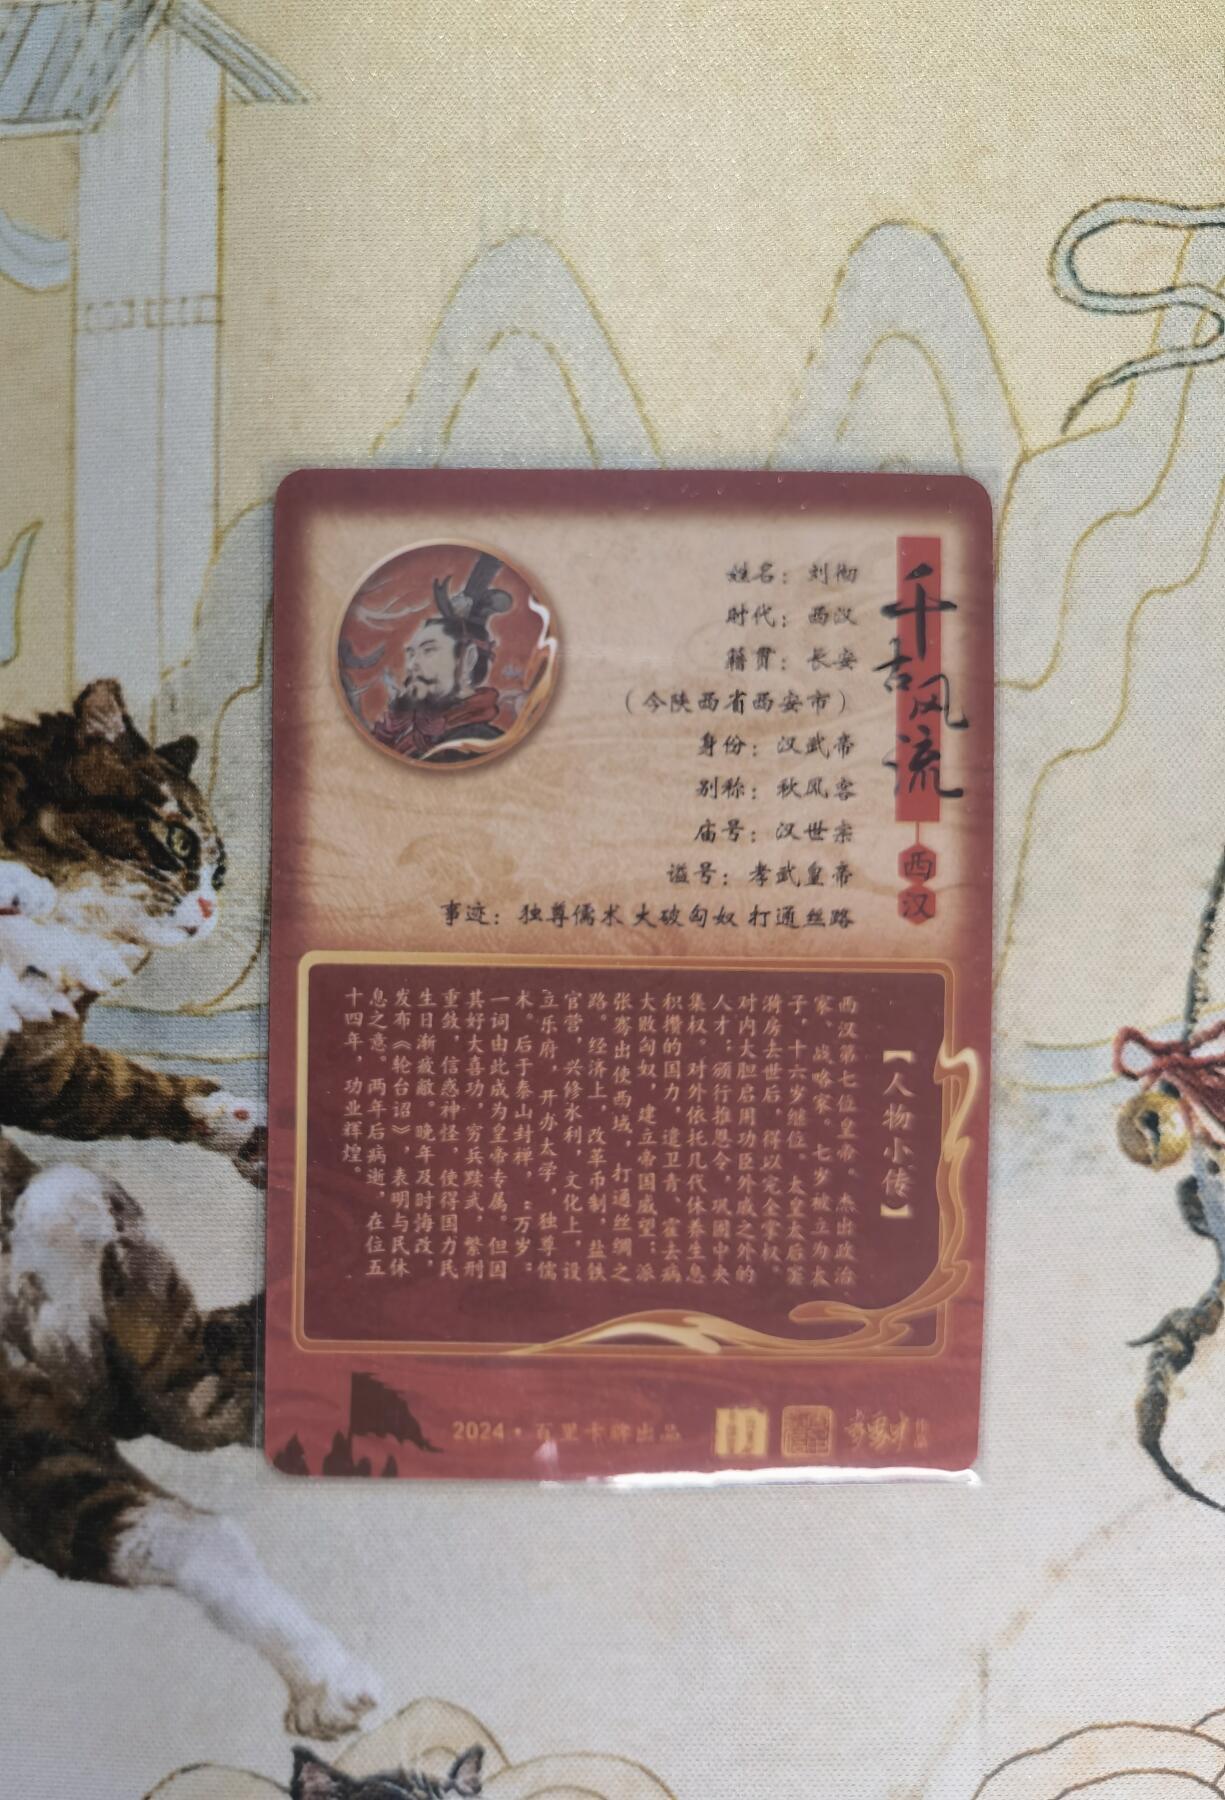 千古风流
西汉
姓名：刘彻
时代：西汉
籍贯：长安
（今陕西省西安市）
身份：汉武帝
别称：秋风客
庙号：汉世宗
谥号：孝武皇帝
事迹：独尊儒术 大破匈奴 打通丝路
【人物小传】
西汉第七位皇帝、杰出政治
家、战略家。七岁被立为太
子，十六岁继位。太皇太后窦
漪房去世后，得以完全掌权。
对内大胆启用功臣外戚之外的
人才；颁行推恩令，巩固中央
集权。对外依托几代休养生息
积攒的国力，遣卫青、霍去病
大败匈奴，建立帝国威望；派
张骞出使西域，打通丝绸之
路。经济上，改革币制，盐铁
官营，兴修水利，文化上，设
立乐府，开办太学，独尊儒
术。后于泰山封禅，“万岁”
一词由此成为皇帝专属。但因
其好大喜功，穷兵黩武，繁刑
重敛，信惑神怪，使得国力民
生日渐疲敝。晚年及时悔改，
发布《轮台诏》，表明与民休
息之意。两年后病逝，在位五
十四年，功业辉煌。
2024·百里卡牌出品